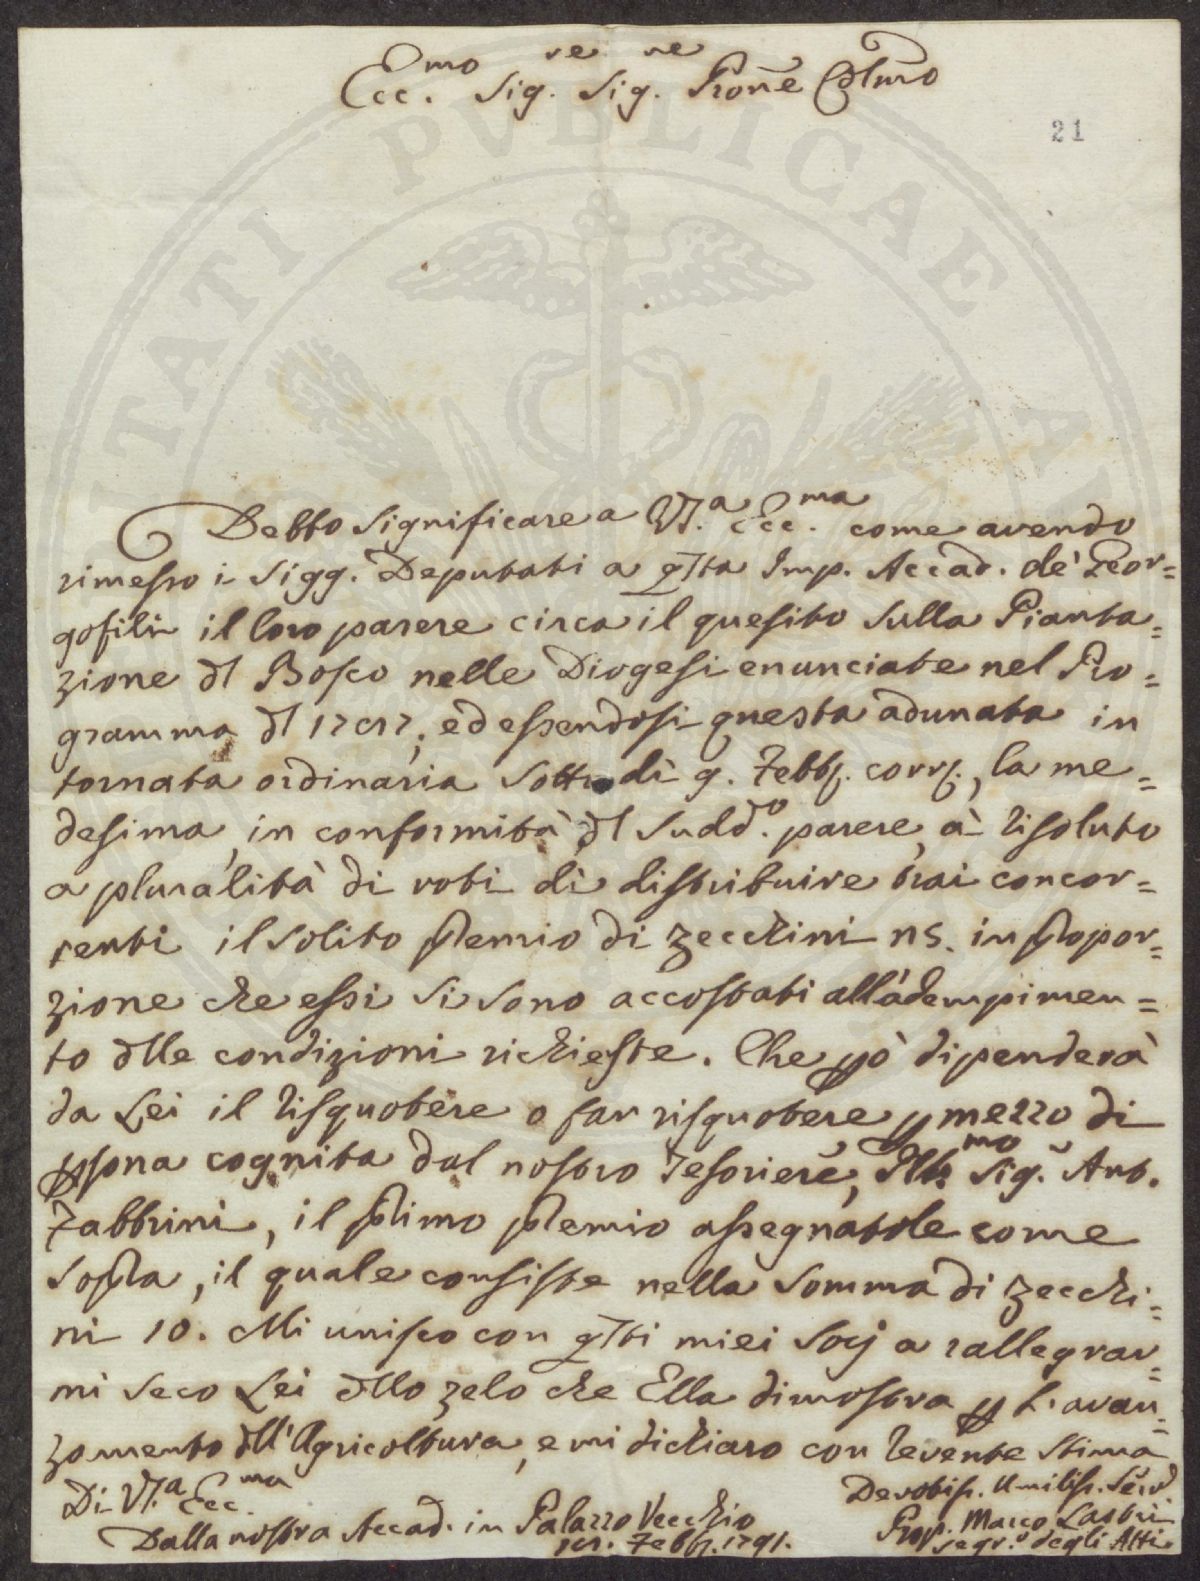 Ecc.mo Sig.re Sig.re Prone Colmo
21
Debbo significare a VS.a Ecc.ma come avendo
rimesso i Sigg. Deputati a qsta Imp. Accad. de' Geor=
gofili il loro parere circa il quesito sulla Pianta=
zione dl Bosco nelle Diogesi enunciate nel Pro=
gramma dl, ed essendosi questa adunata in
tornata ordinaria sotto dì 9. Febb. corr., la me=
desima, in conformità dl sudd.o parere, à risoluto
a pluralità di voti di distribuire trai concor=
renti il solito premio di zecchini 25. in propor=
zione che essi si sono accostati all'adempimen=
to dlle condizioni richieste. Che pò dipenderà
da Lei il risquotere o far risquotere p mezzo di
psona cognita dal nostro Tesoriere, Illmo Sig. Ant.
Fabbrini, il primo premio assegnatole come
sopra, il quale consiste nella somma di zecchi=
ni 10. Mi unisco con qsti miei Socj a rallegrar=
mi seco Lei dllo zelo che Ella dimostra p l'avan=
zamento dll'Agricoltura, e mi dichiaro con revente stima
Di VS.a Ecc.ma
Devotiss. Umiliss. Serv
Dalla nostra Accad. in Palazzo Vecchio
Febb. 1791.
Prop. Marco Lastri
segr.o degli Atti